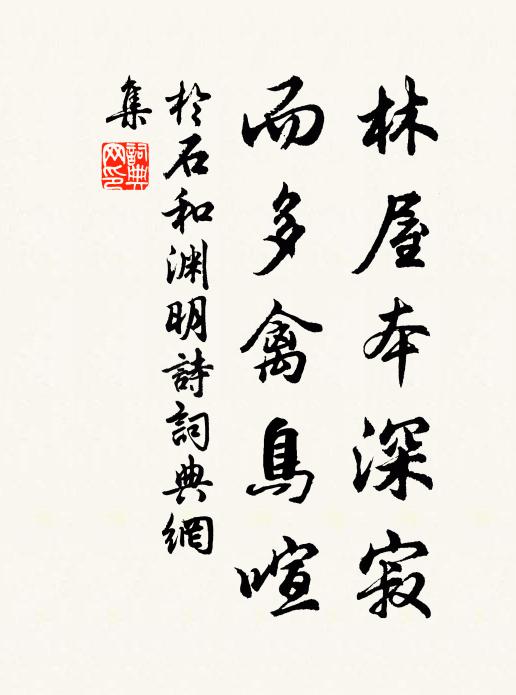 林屋本深寂
而多禽鳥喧
於石和淵明詩詞典網
集
詞典
网印